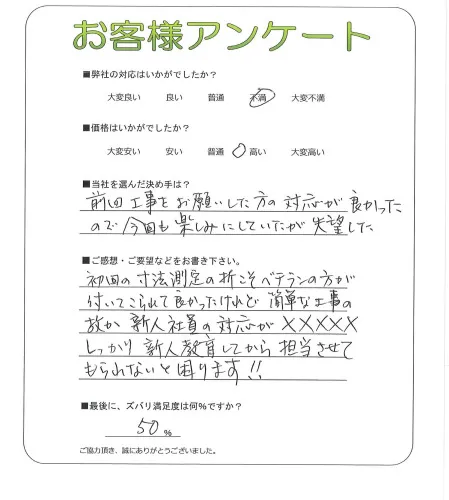 お客様アンケート
■弊社の対応はいかがでしたか?
大変良い 良い 普通 不満 大変不満
■価格はいかがでしたか?
大変安い 安い 普通 高い 大変高い
■当社を選んだ決め手は?
前回工事をお願いした方の対応が良かった
ので今回も楽しみにしていたが失望した
■ご感想・ご要望などをお書き下さい。
初回の寸法測定の折こそベテランの方が
付いてこられて良かったけれど簡単な工事の
故か新人社員の対応が×××××
しっかり新人教育してから担当させて
もられないと困ります!!
■最後に、ズバリ満足度は何%ですか?
50%
ご協力頂き、誠にありがとうございました。